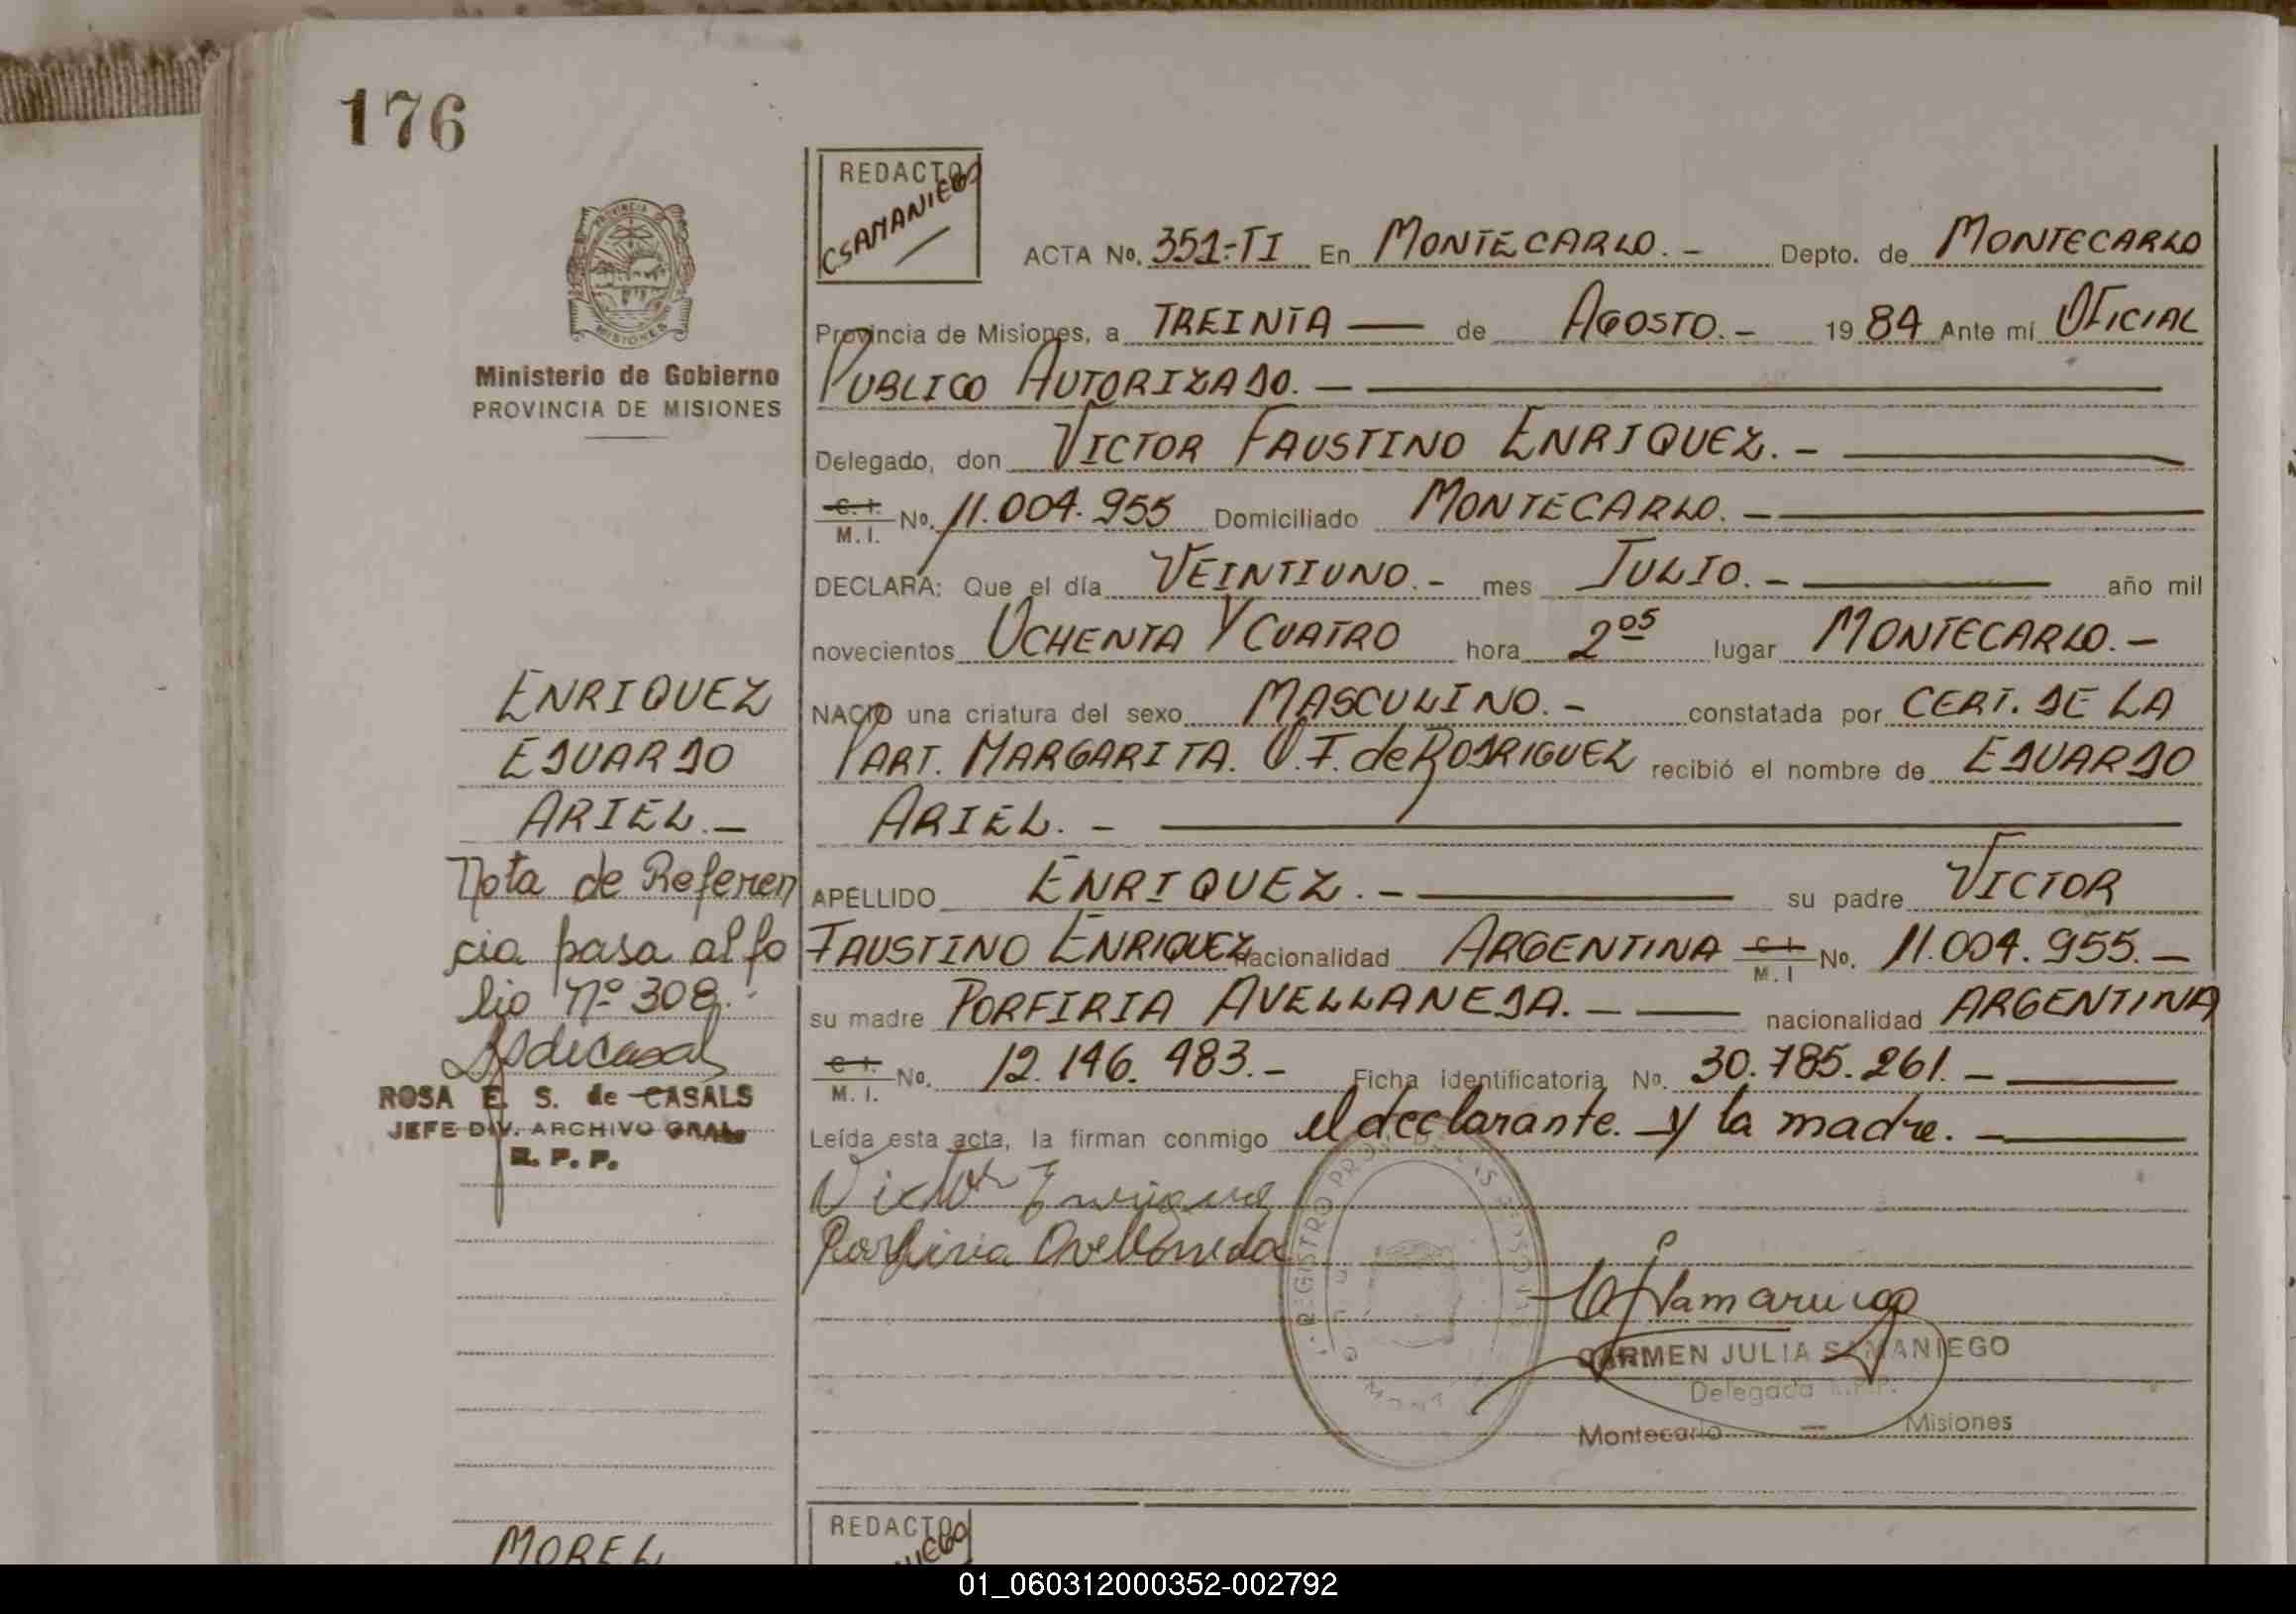 176
PROVINCIA DE
MISIONES
Ministerio de Gobierno
PROVINCIA DE MISIONES
REDACTO
CSAMANIEGO
ACTA No. 351-TI En MONTECARLO.- Depto. de MONTECARLO
Provincia de Misiones, a TREINTA — de AGOSTO.- 1984 Ante mi OFICIAL
PUBLICO AUTORIZADO.-
Delegado, don VICTOR FAUSTINO ENRIQUEZ.-
C. I.
M. I. No. 11.004.955 Domiciliado MONTECARLO.-
DECLARA: Que el día VEINTIUNO.- mes JULIO.- año mil
novecientos OCHENTA Y CUATRO hora 2 05 lugar MONTECARLO.-
NACIO una criatura del sexo MASCULINO.- constatada por CERT. DE LA
PART. MARGARITA. O. F. de RODRIGUEZ recibió el nombre de EDUARDO
ARIEL.-
APELLIDO ENRIQUEZ.- su padre VICTOR
FAUSTINO ENRIQUEZ nacionalidad ARGENTINA C. I. M. I No. 11.004.955.-
su madre PORFIRIA AVELLANEDA.- nacionalidad ARGENTINA
C. I.
M. I. No. 12.146.483.- Ficha identificatoria No. 30.785.261.-
Leída esta acta, la firman conmigo el declarante. y la madre.-
Victor Enriquez
Porfiria Avellaneda
REGISTRO PROV. DE LAS PERSONAS
CSamaniego
CARMEN JULIA SAMANIEGO
Delegada R.P.P.
Montecarlo - Misiones
ENRIQUEZ
EDUARDO
ARIEL.-
Nota de Referen
cia pasa al fo
lio Nº 308.-
ROSA E. S. de CASALS
JEFE DIV. ARCHIVO GRAL.
R. P. P.
MOREL
REDACTO
01_060312000352-002792